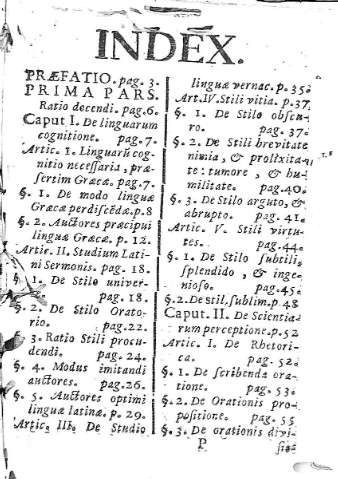 INDEX.
PRÆFATIO. pag. 3.
PRIMA PARS.
Ratio decendi. pag. 6.
Caput I. De linguarum
cognitione. pag. 7.
Artic. I. Linguarū cog-
nitio necessaria, præ-
sertim Græcæ. pag. 7.
§. 1. De modo linguæ
Græcæ perdiscēdæ. p. 8
§. 2. Auctores præcipui
linguæ Græcæ. p. 12.
Artic. II. Studium Lati-
ni Sermonis. pag. 18.
§. 1. De Stilo univer-
pag. 18.
§. 2. De Stilo Orato-
rio. pag. 22.
3. Ratio Stili procu-
dendi. pag. 24.
§. 4. Modus imitandi
auctores. pag. 26.
§. 5. Auctores optimi
linguæ latinæ. p. 29.
Artic. III. De Studio
linguæ vernac. p. 35.
Art. IV. Stili vitia. p. 37.
§. 1. De Stilo obscu-
ro. pag. 37.
§. 2. De Stili brevitate
nimia, & prolixita-
te: tumore, & hu-
militate. pag. 40.
§. 3. De Stilo arguto, &
abrupto. pag. 41.
Artic. V. Stili virtu-
tes. pag. 44.
§. 1. De Stilo subtili,
splendido, & inge-
nioso. pag. 45.
§. 2. De stil. sublim. p. 48
Caput. II. De Scientia-
rum perceptione. p. 52
Artic. I. De Rhetori-
ca. pag. 52.
§. 1. De scribenda ora-
tione. pag. 53.
§. 2. De Orationis pro-
positione. pag. 55
§. 3. De orationis divi-
P